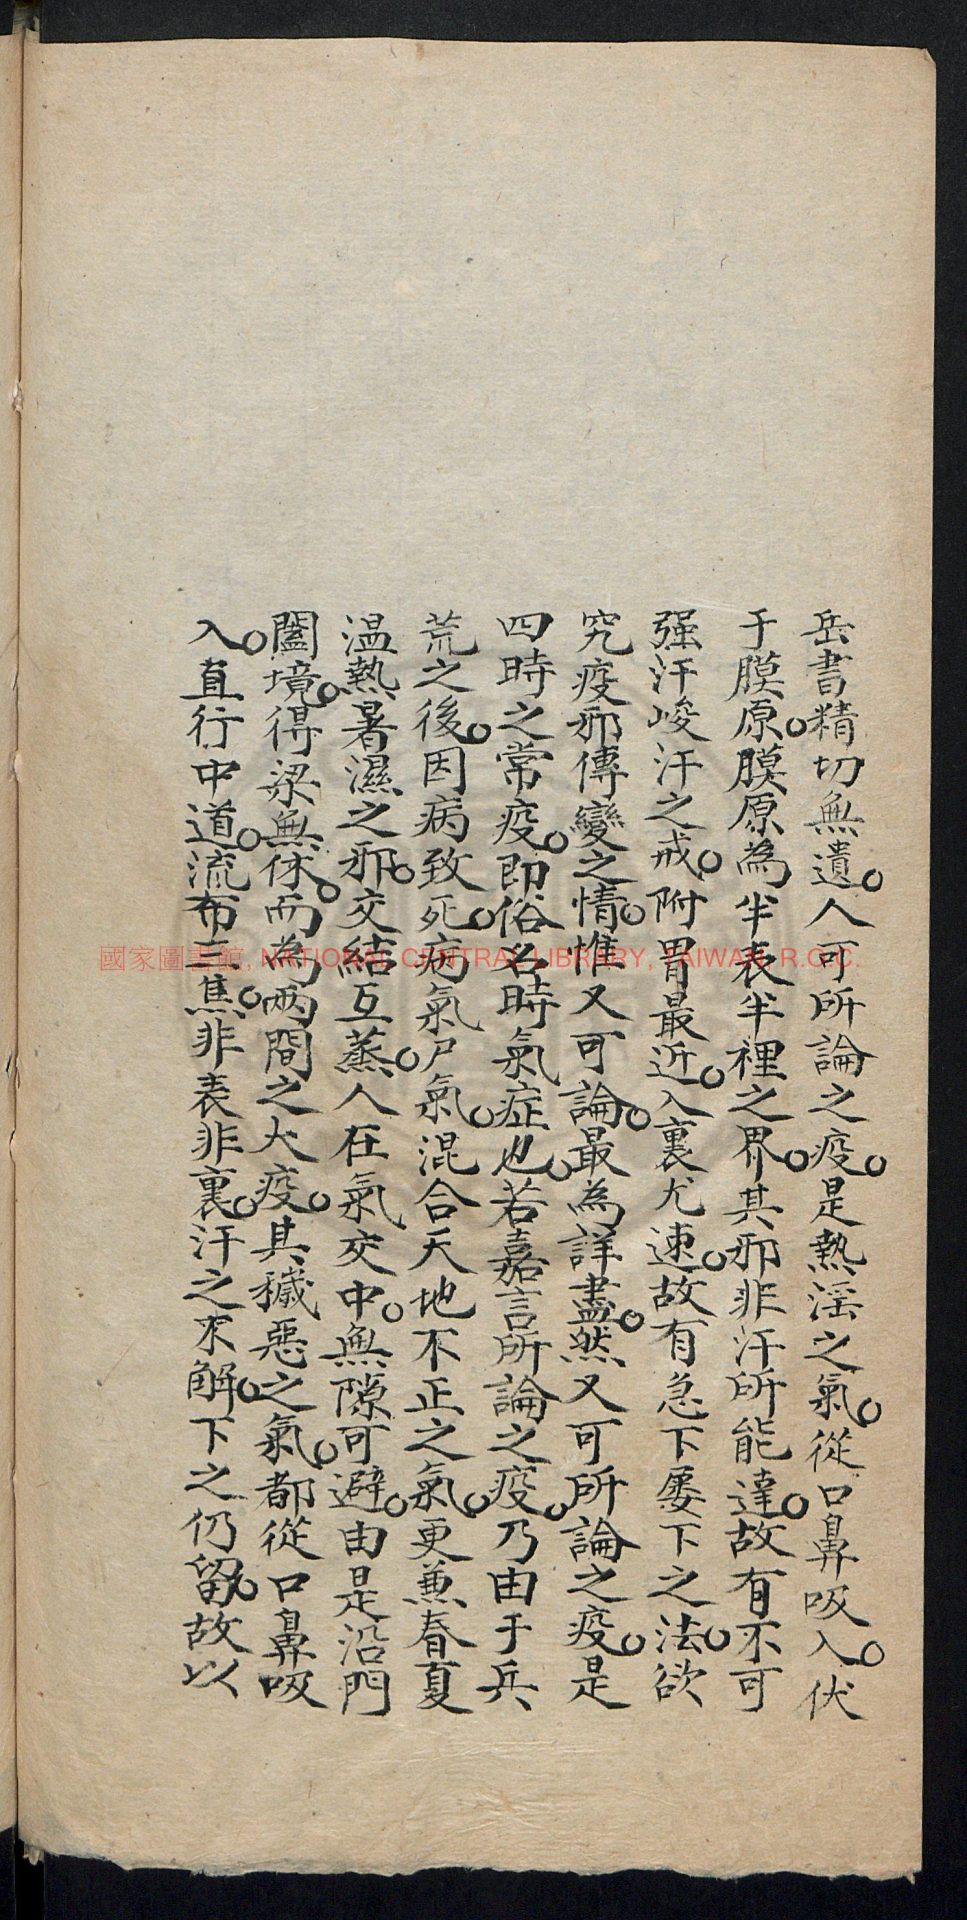 岳書精切無遺。人可所論之疫。是熱淫之氣。從口鼻吸入。伏
于膜原。膜原為半表半裡之界。其邪非汗所能達。故有不可
强汗峻汗之戒。附胃最近。入裏尤速。故有急下屡下之法。欲
究疫邪傳變之情。惟又可論。最為詳盡。然又可所論之疫。是
四時之常疫。即俗名時氣症也。若嘉言所論之疫。乃由于兵
荒之後。因病致死。病氣尸氣。混合天地不正之氣。更兼春夏
温熱暑濕之邪。交結互蒸。人在氣交中。無隙可避。由是沿門
闔境。得染無休。而為兩間之大疫。其穢惡之氣。都從口鼻吸
入。直行中道。流布三焦。非表非裏。汗之不解。下之仍留。故以
國家圖書館, NATIONAL CENTRAL LIBRARY, TAIWAN, R.O.C.